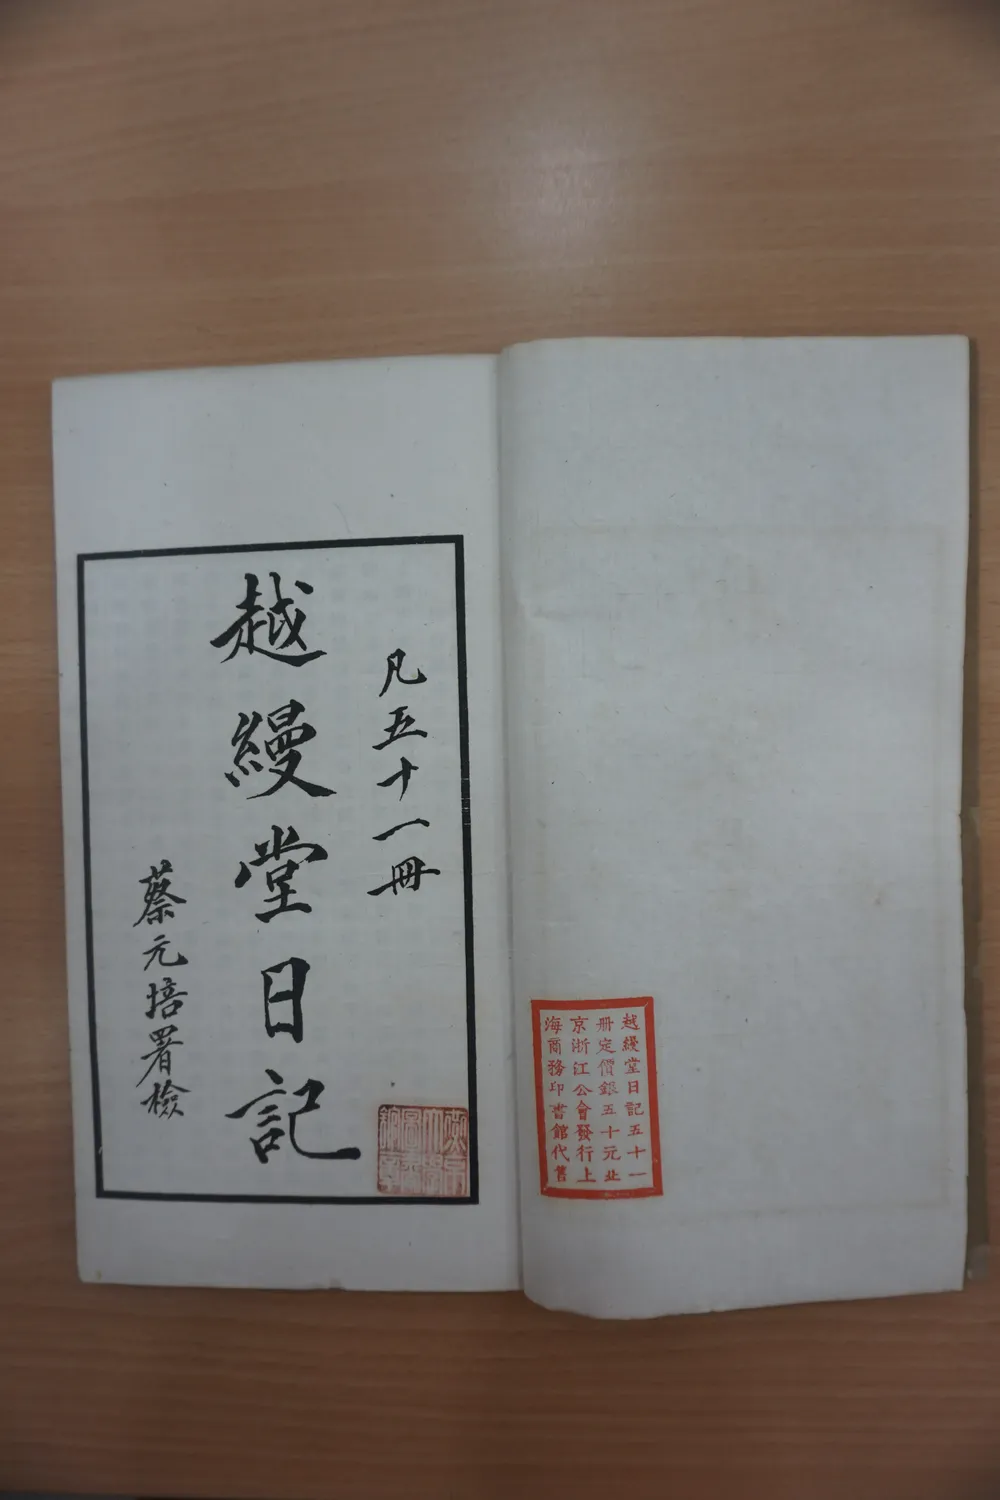 越縵堂日記五十一
冊定價銀五十元北
京浙江公會發行上
海商務印書館代售
凡五十一冊
越縵堂日記
蔡元培署檢